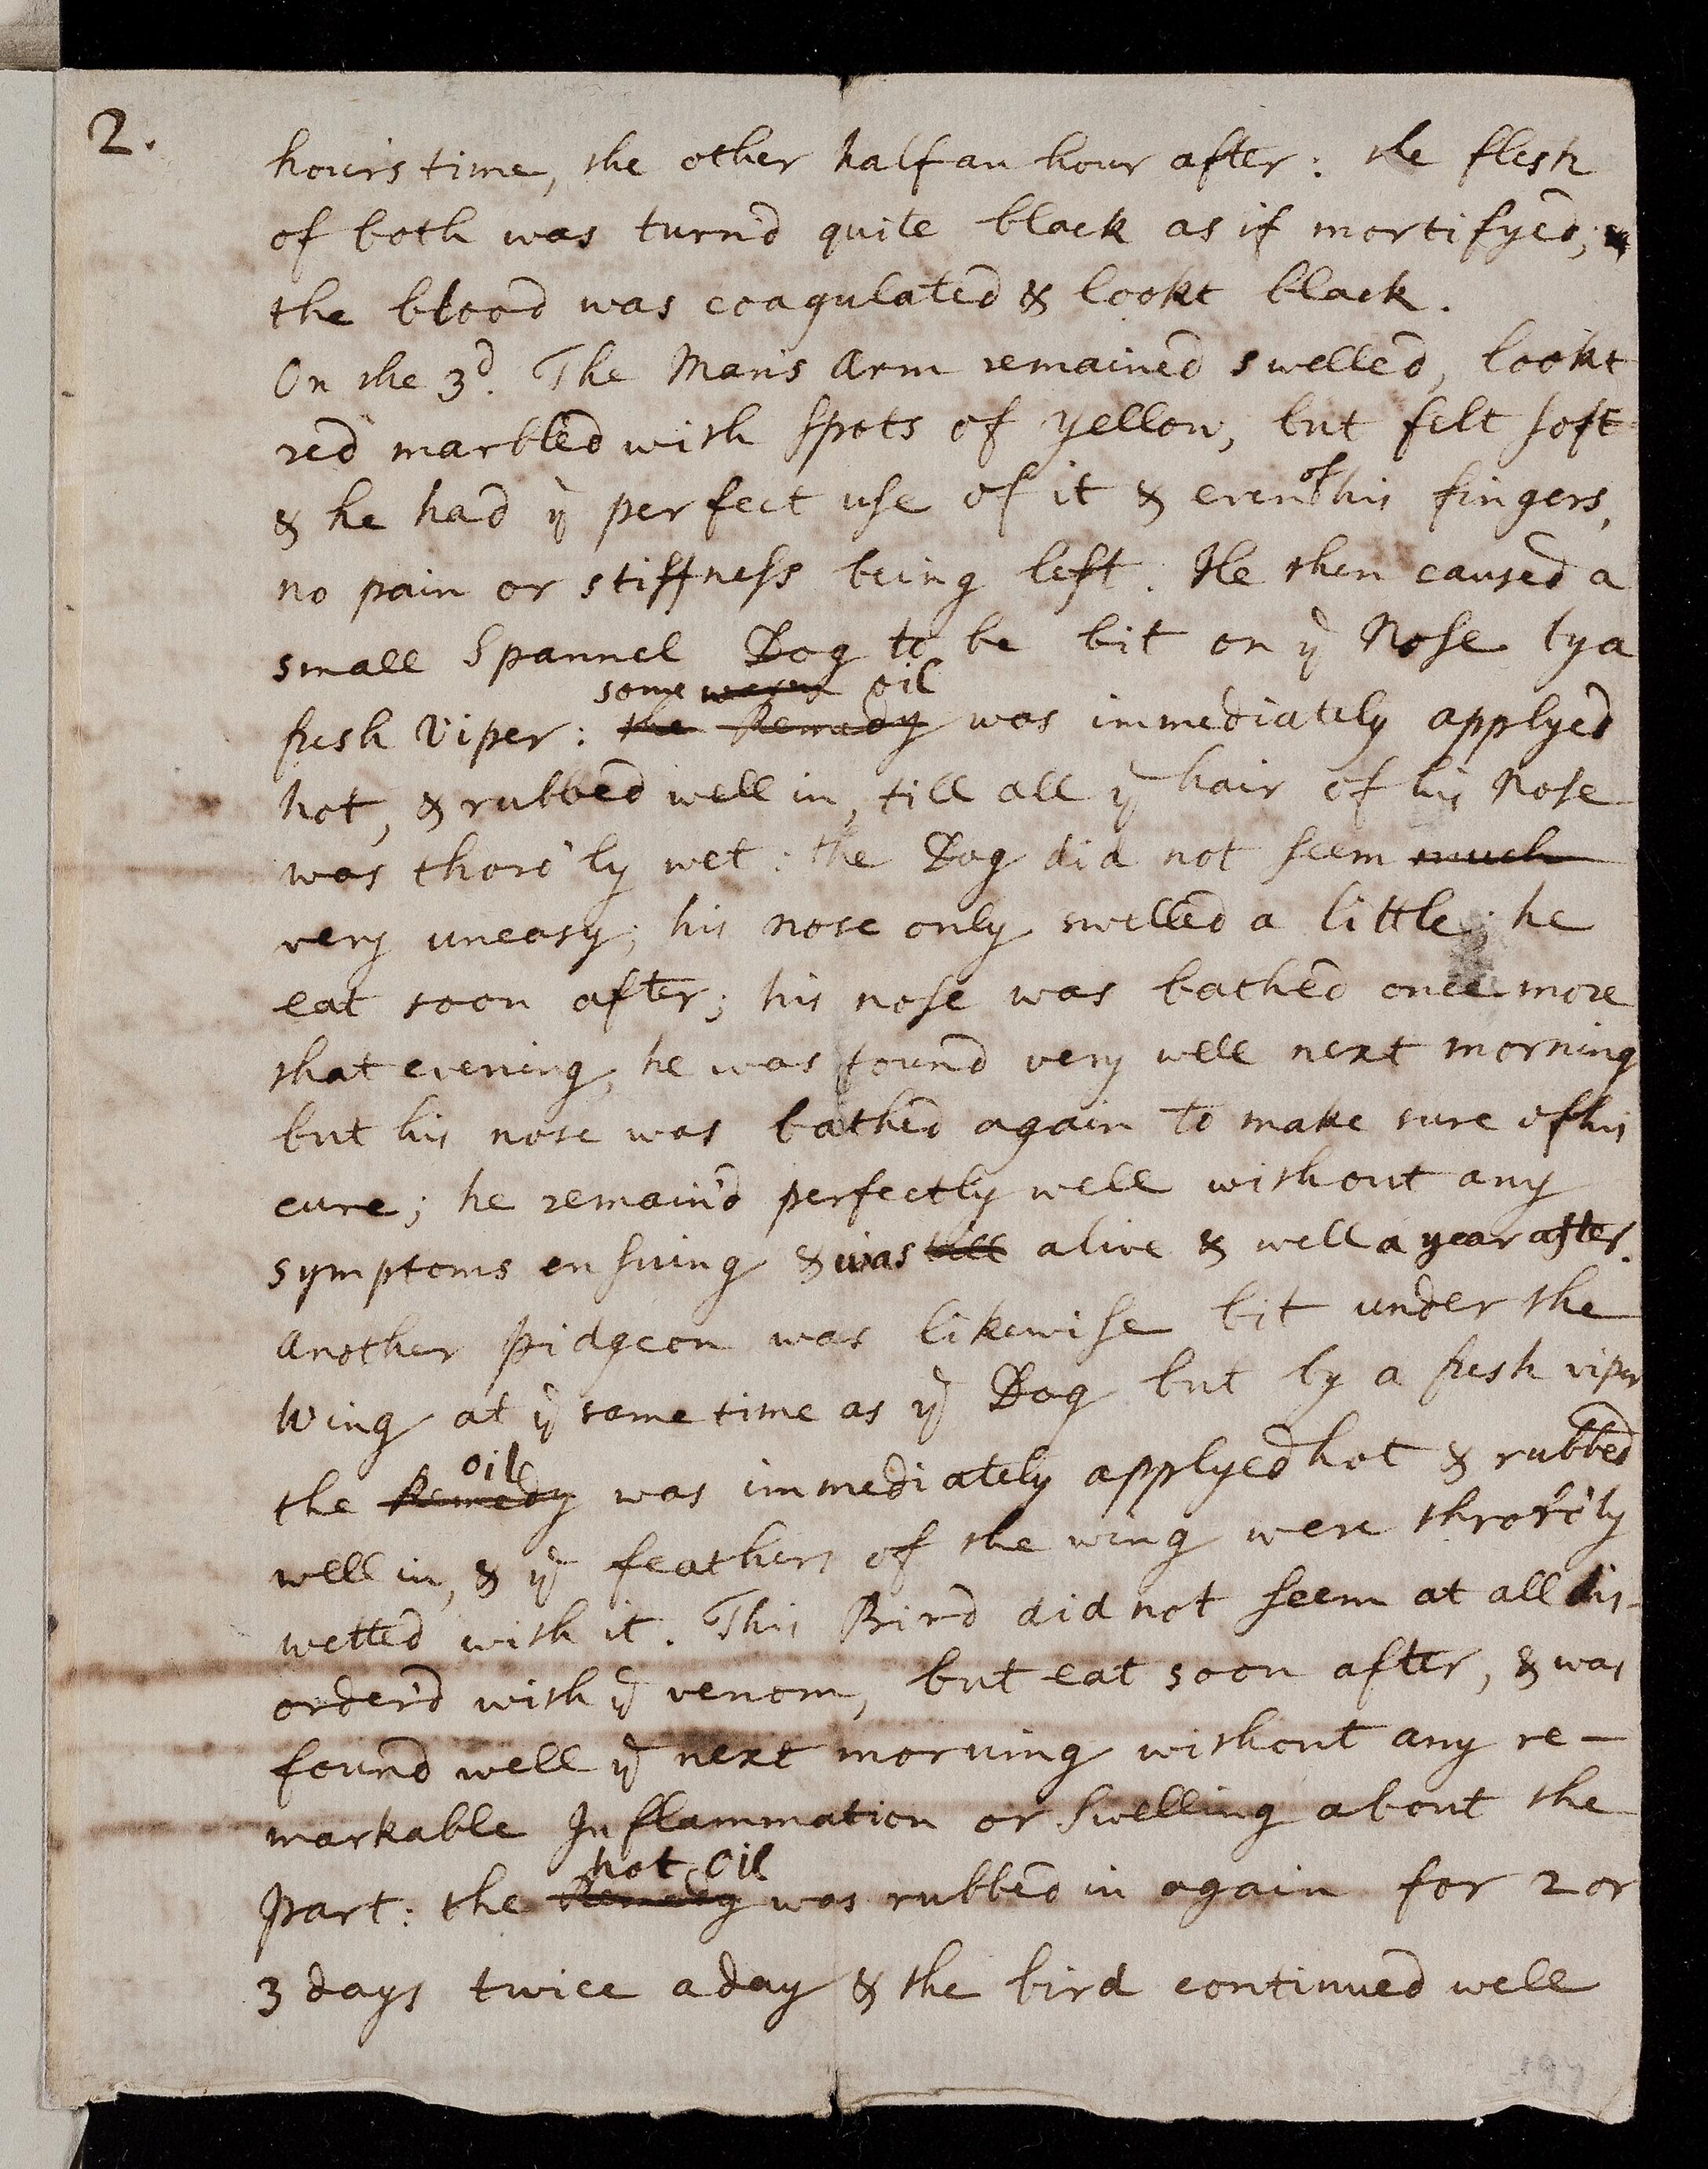 2.
hour's time, the other half an hour after: the flesh
of both was turn'd quite black as if mortifyed;
the blood was coagulated & lookt black.
On the 3d. The Man's Arm remained swelled, lookt
red marbled with spots of yellow, but felt soft
& he had ye perfect use of it & even of his fingers,
no pain or stiffness being left. He then caused a
small Spannel Dog to be bit on ye Nose by a
some warm oil
fresh Viper: the Remedy was immediately applyed
hot, & rubbed well in, till all ye hair of his Nose
was thoro'ly wet: the Dog did not seem much
very uneasy; his nose only swelled a little; he
eat soon after; his nose was bathed once more
that evening, he was found very well next morning
but his nose was bathed again to make sure of his
cure; he remain'd perfectly well without any
symptoms ensuing & was still alive & well a year after.
Another pidgeon was likewise bit under the
Wing at ye same time as ye Dog but by a fresh viper
oil
the Remedy was immediately applyed hot & rubbed
well in, & ye feathers of the wing were thro'ly
wetted with it. This Bird did not seem at all dis-
order'd with ye venom, but eat soon after, & was
found well ye next morning without any re-
markable Inflammation or Swelling about the
hot oil
part: the Remedy was rubbed in again for 2 or
3 days twice a day & the bird continued well